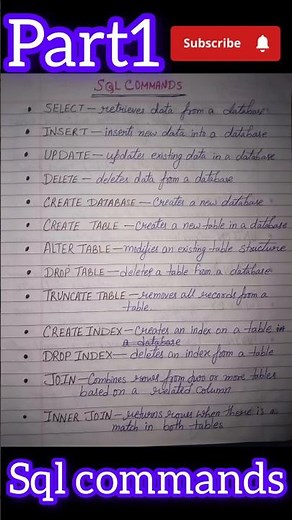 Part1
Subscribe
SQL COMMANDS
• SELECT – retrieves data from a database.
• INSERT – inserts new data into a database
• UPDATE – updates existing data in a database
• DELETE – deletes data from a database
• CREATE DATABASE – Creates a new database.
• CREATE TABLE – Creates a new table in a database
• ALTER TABLE – modifies an existing table structure
• DROP TABLE – deletes a table from a database
• TRUNCATE TABLE – removes all records from a
table.
• CREATE INDEX – Creates an index on a table in
a database
• DROP INDEX – deletes an index from a table
• JOIN – Combines rows from two or more tables
based on a related column
• INNER JOIN – returns rows when there is a
match in both tables
Sql commands